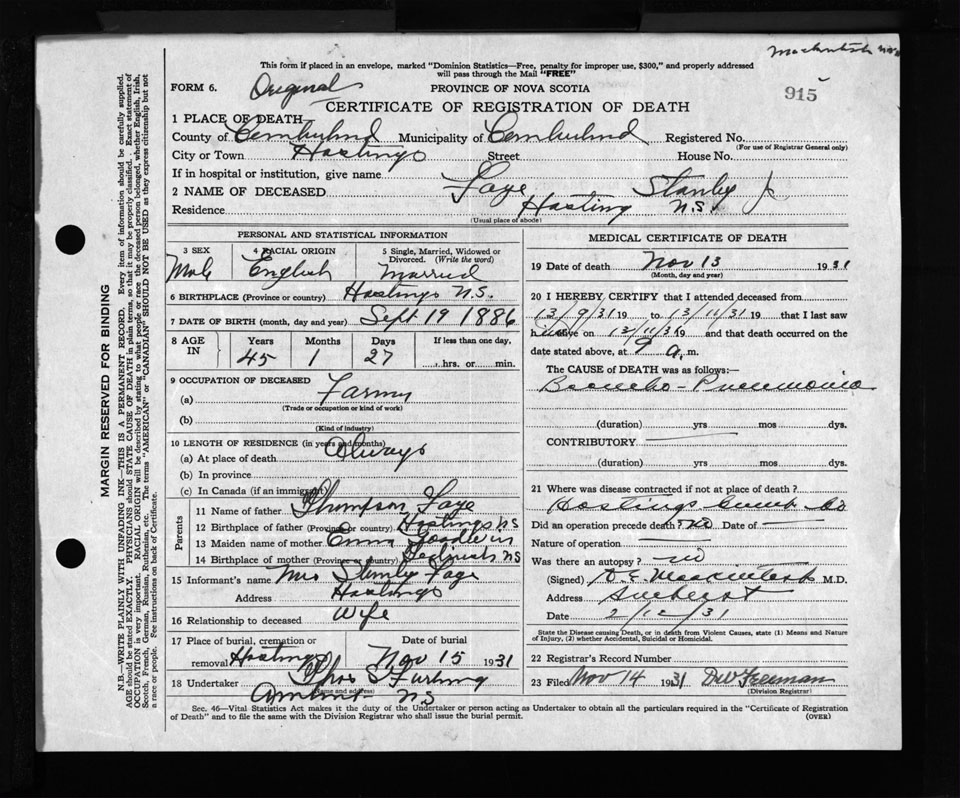 915
This form if placed in an envelope, marked "Dominion Statistics—Free, penalty for improper use, $300," and properly addressed
will pass through the Mail "FREE"
FORM 6. Original PROVINCE OF NOVA SCOTIA
CERTIFICATE OF REGISTRATION OF DEATH
1 PLACE OF DEATH
County of Cumberland Municipality of Cumberland Registered No.
(For use of Registrar General only)
City or Town Hastings Street House No.
If in hospital or institution, give name
2 NAME OF DECEASED Faye Stanley
Residence Hasting N.S.
(Usual place of abode)
PERSONAL AND STATISTICAL INFORMATION
3 SEX 4 RACIAL ORIGIN 5 Single, Married, Widowed or Divorced. (Write the word)
Male English Married
6 BIRTHPLACE (Province or country) Hastings N.S.
7 DATE OF BIRTH (month, day and year) Sept 19 1886
8 AGE IN Years Months Days If less than one day,
45 1 27 hrs. or min.
9 OCCUPATION OF DECEASED
(a) Farmer
(Trade or occupation or kind of work)
(b)
(Kind of industry)
10 LENGTH OF RESIDENCE (in years and months)
(a) At place of death Always
(b) In province
(c) In Canada (if an immigrant)
Parents
11 Name of father Thompson Faye
12 Birthplace of father (Province or country) Hastings NS
13 Maiden name of mother Emma Goodwin
14 Birthplace of mother (Province or country) NS
15 Informant's name Mrs Stanley Faye
Address Hastings
16 Relationship to deceased Wife
17 Place of burial, cremation or removal Hastings Date of burial Nov 15 1931
18 Undertaker Thos S Furlong
(Name and address)
Amherst NS
MEDICAL CERTIFICATE OF DEATH
19 Date of death Nov 13 1931
(Month, day and year)
20 I HEREBY CERTIFY that I attended deceased from
13/9/31 19 to 13/11/31 19 and that I last saw
h alive on 13/11/31 19 and that death occurred on
date stated above, at 9 a.m.
The CAUSE OF DEATH was as follows:
Broncho-Pneumonia
(duration) yrs mos dys.
CONTRIBUTORY
(duration) yrs mos dys.
21 Where was disease contracted if not at place of death?
Hastings Cumb Co
Did an operation precede death? no Date of
Nature of operation
Was there an autopsy? no
(Signed) MacKintosh M.D.
Address Amherst
Date 2/12/31
State the Disease causing Death, or in death from Violent Causes, state (1) Means and Nature
of Injury, (2) whether Accidental, Suicidal or Homicidal.
22 Registrar's Record Number
23 Filed Nov 14 1931 DW Freeman
(Division Registrar)
Sec. 46—Vital Statistics Act makes it the duty of the Undertaker or person acting as Undertaker to obtain all the particulars required in the "Certificate of Registration
of Death" and to file the same with the Division Registrar who shall issue the burial permit. (OVER)
MARGIN RESERVED FOR BINDING
N.B.—WRITE PLAINLY WITH UNFADING INK—THIS IS A PERMANENT RECORD. Every item of information should be carefully supplied.
AGE should be stated EXACTLY. PHYSICIANS should STATE CAUSE OF DEATH in plain terms, so that it may be properly classified. Exact statement of
OCCUPATION is very important. RACIAL ORIGIN will be described by stating to what people or race the deceased person belonged, whether English, Irish,
Scotch, French, German, Russian, Ruthenian, etc. The terms "AMERICAN" or "CANADIAN" SHOULD NOT BE USED as they express citizenship but not
a race or people. See instructions on back of Certificate.